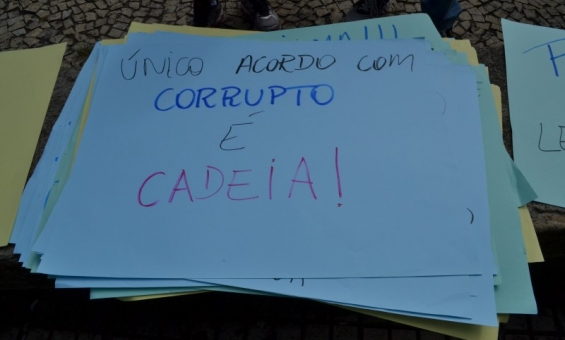 ÚNICO ACORDO COM
CORRUPTO
É
CADEIA!